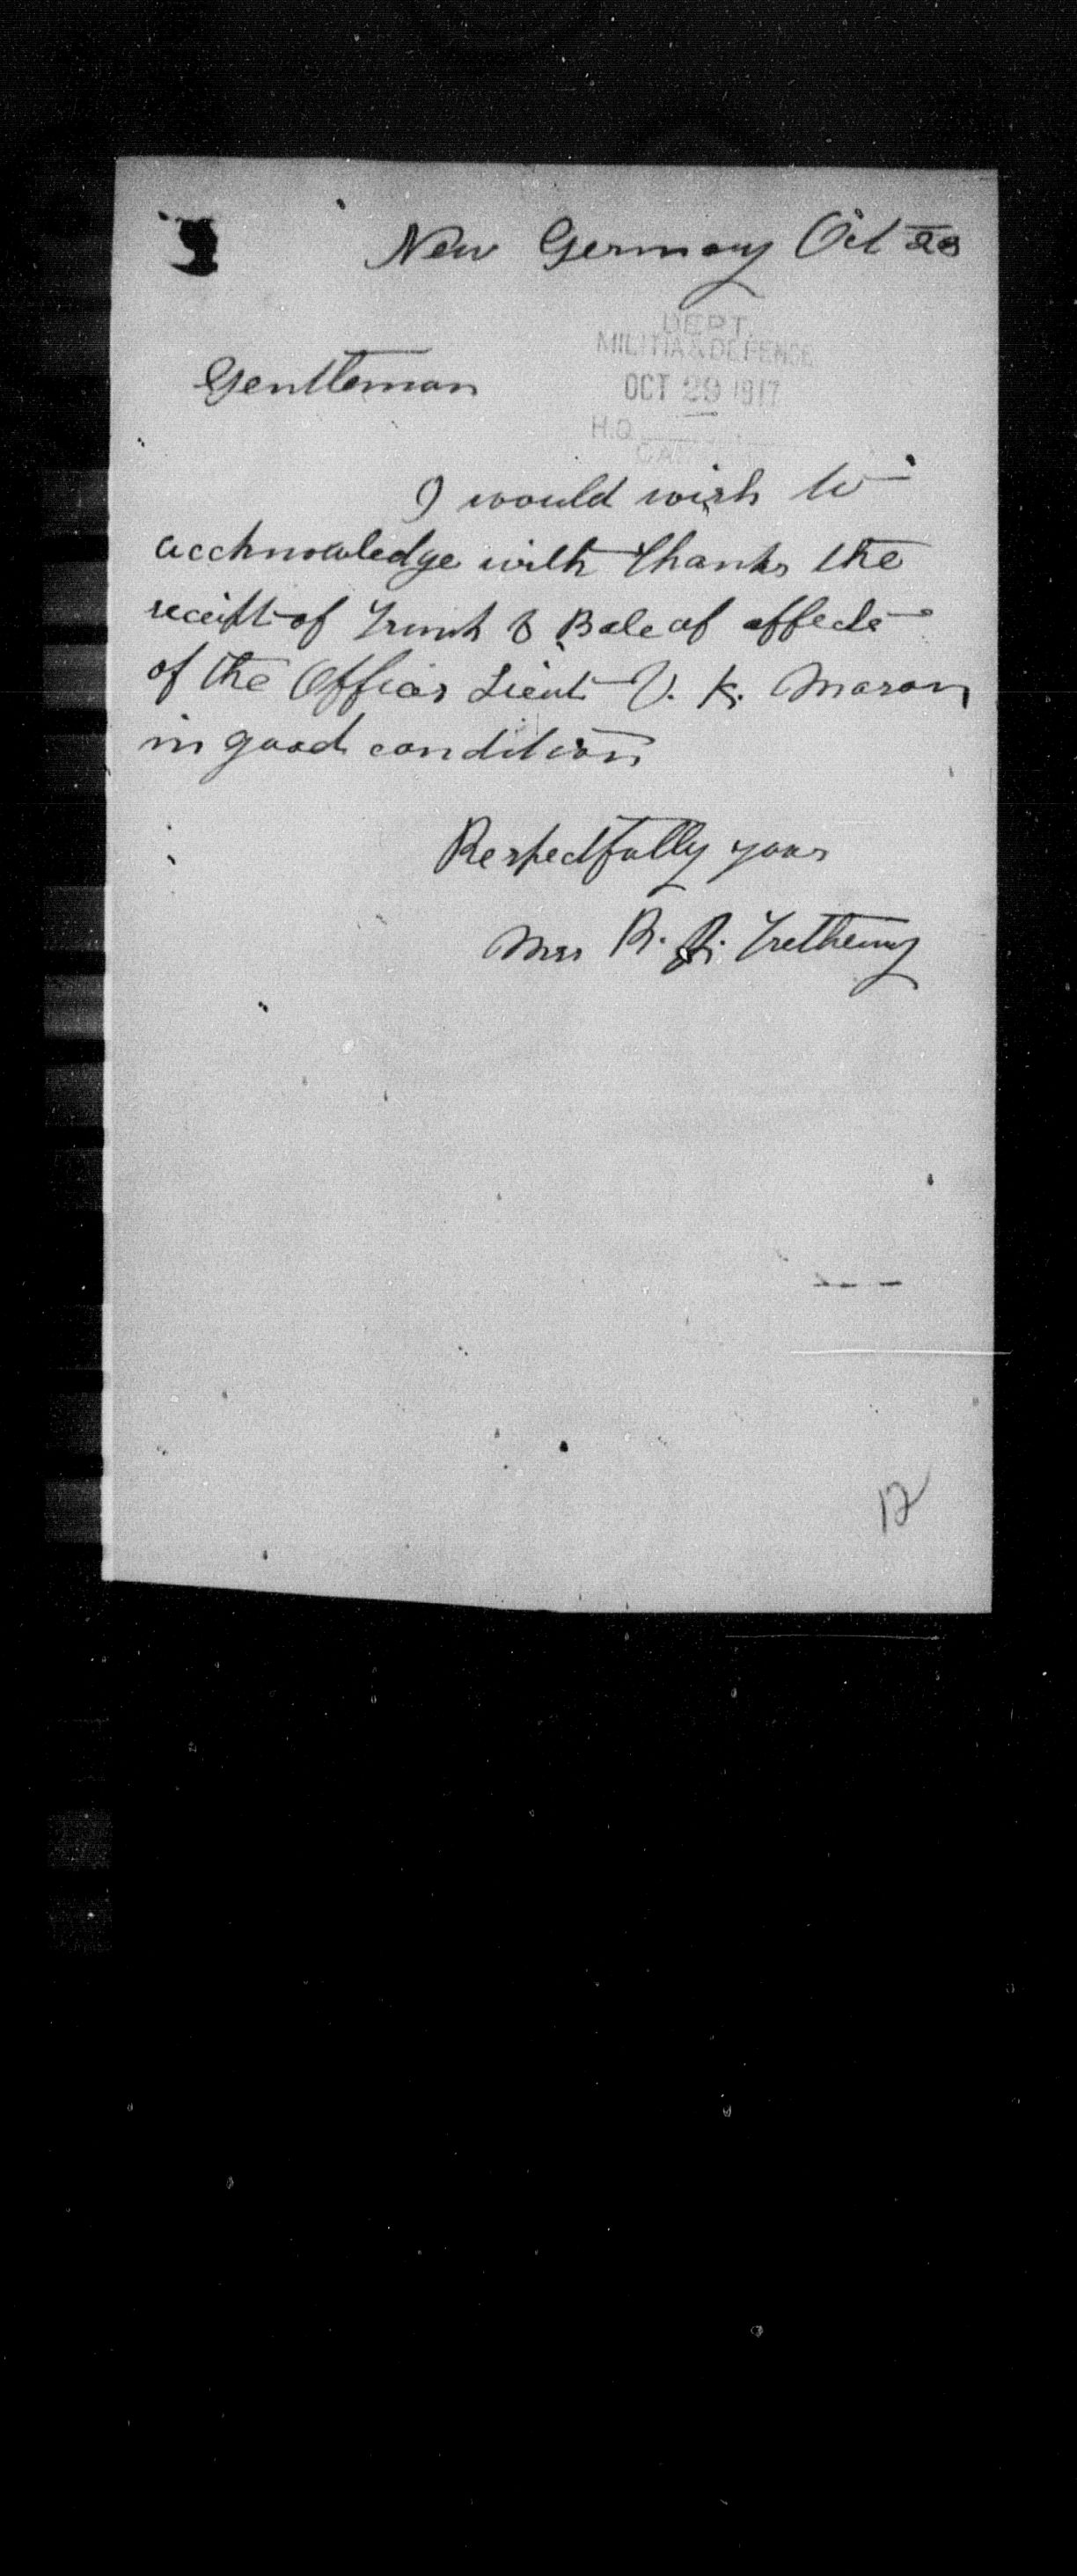 New Germany Oct 23
DEPT.
MILITIA & DEFENCE
OCT 29 1917
H.Q.
Gentleman
I would wish to
acchnowledge with thanks the
receipt of Trunk & Bale of effects
of the Officer Lieut V. K. Mason
in good condition
Respectfully yours
Mrs R. J. Trethewey
12